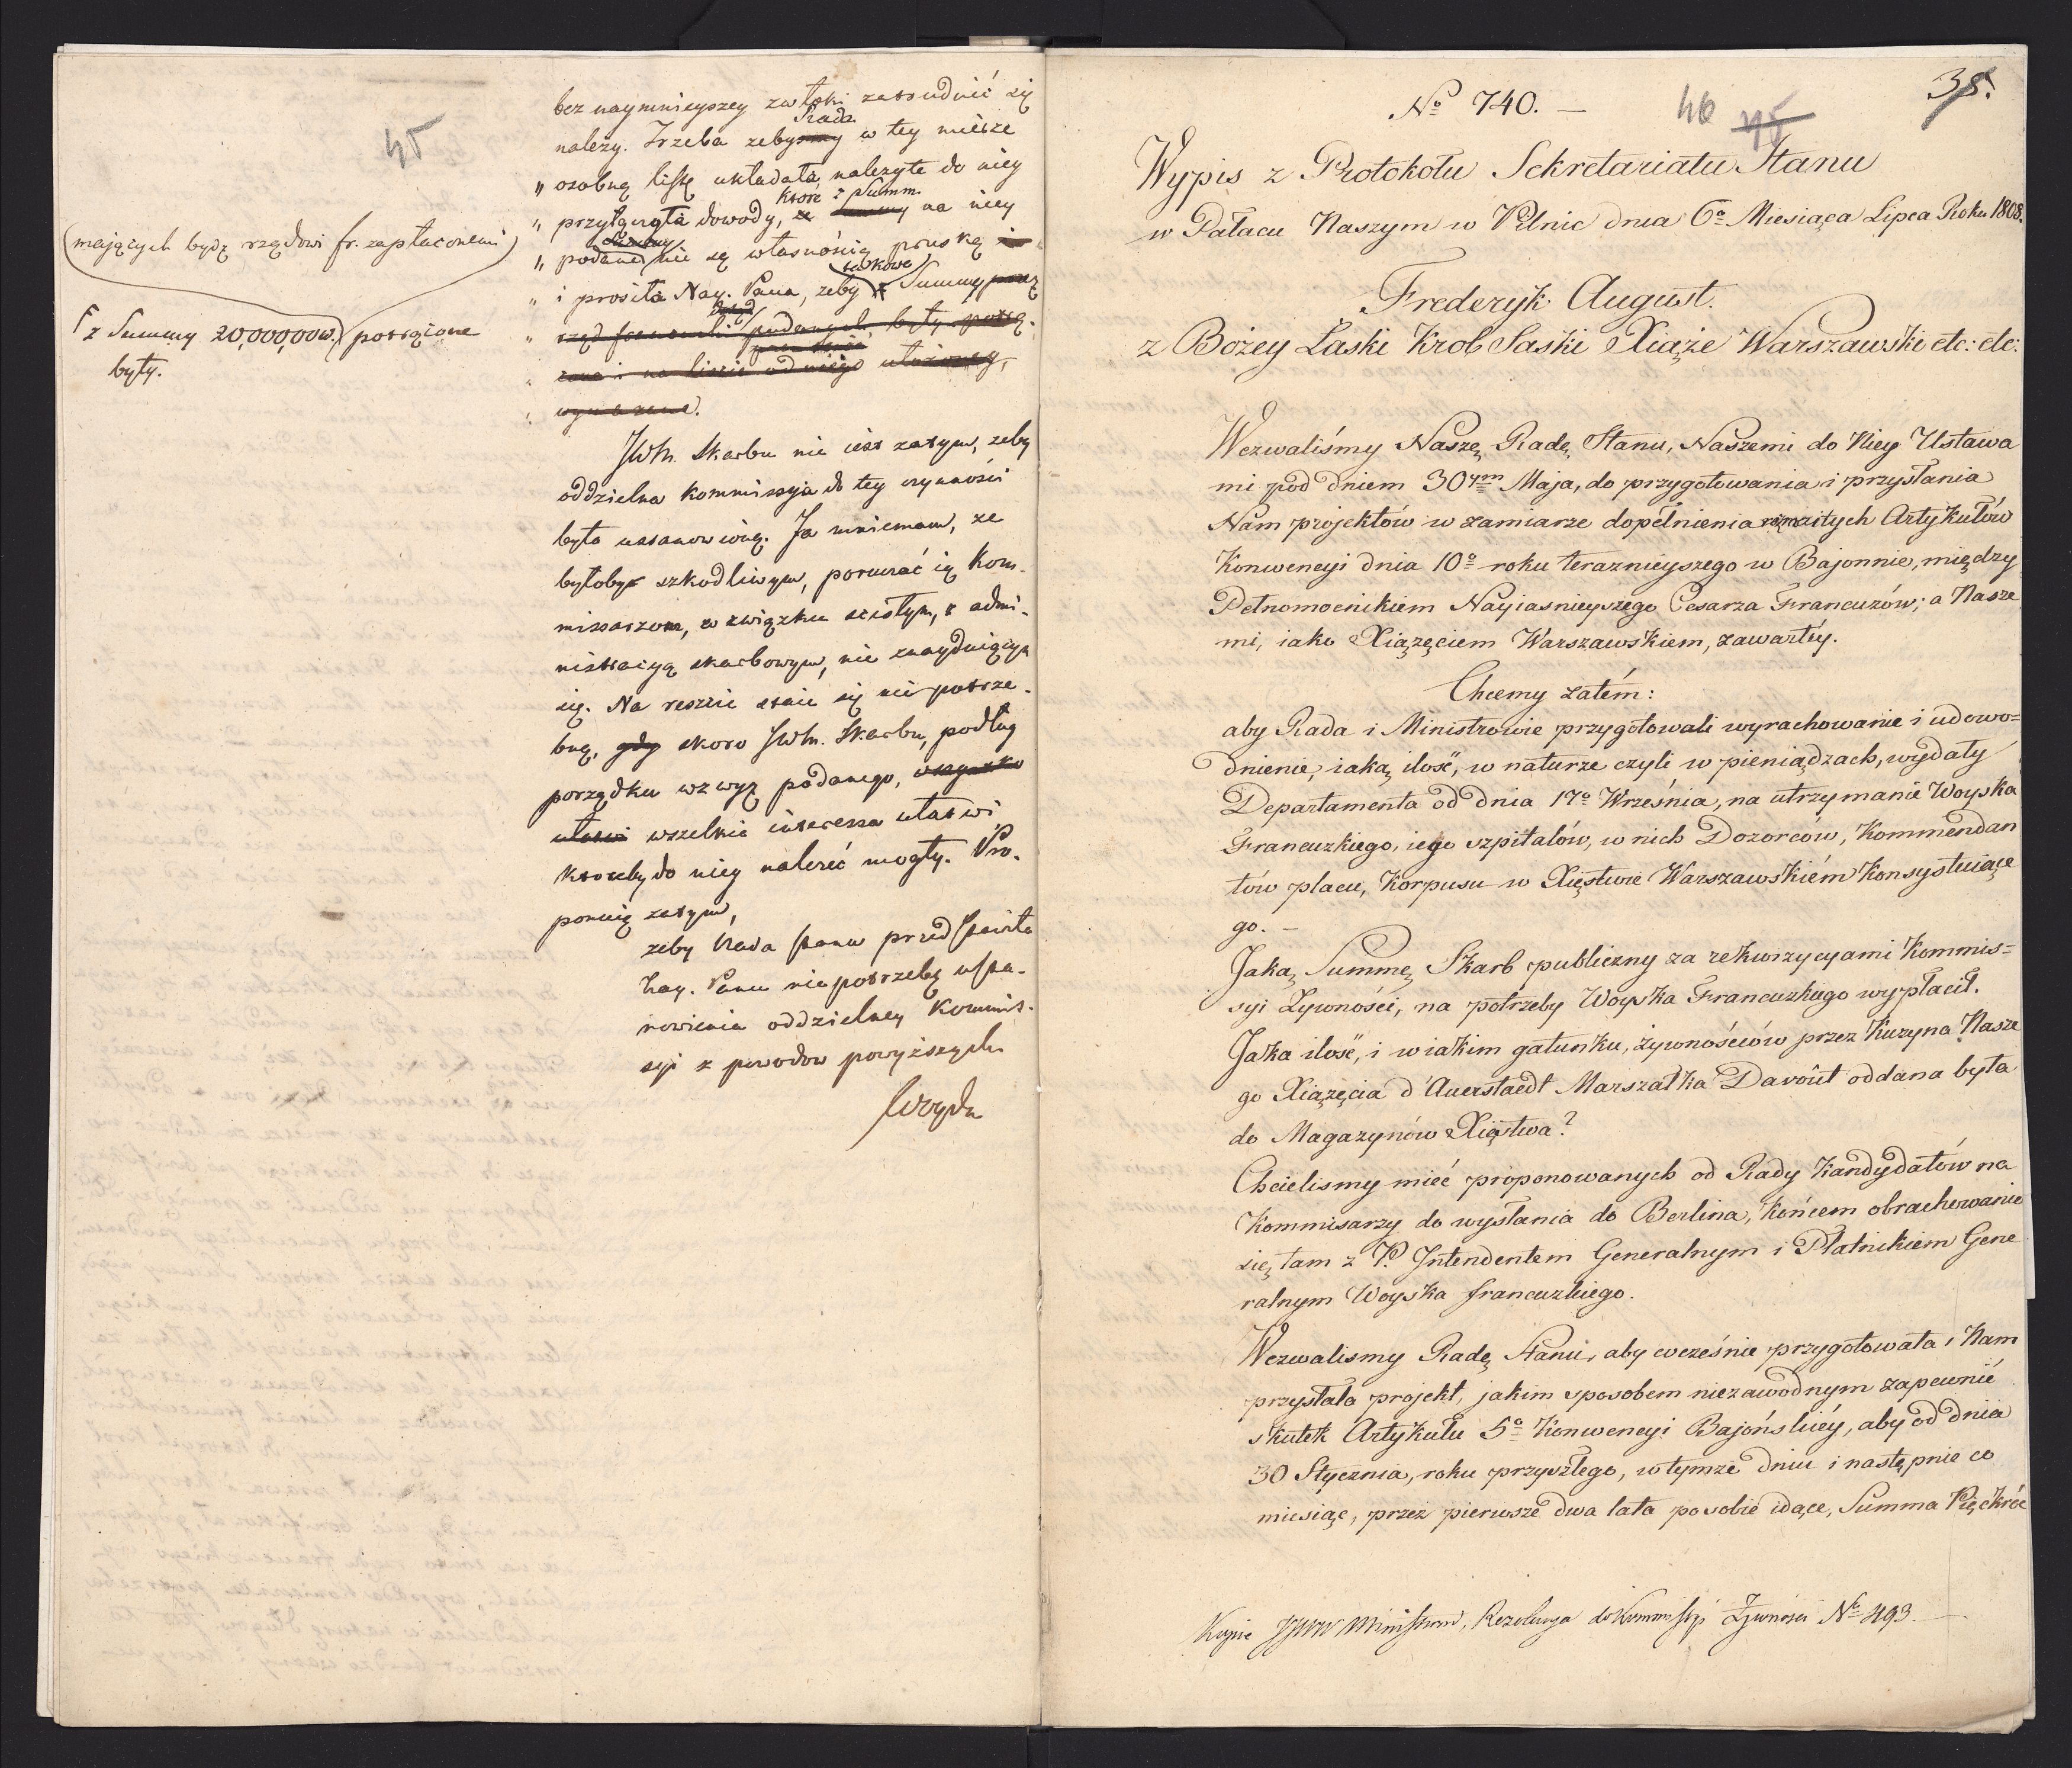 45
bez naymnieyszey zwłoki zatrudnić się
Rada
należy. Trzeba żeby w tey mierze
„ osobną listę układała, należyte do niey
które Summ.
„ przyłączyła dowody, na niey
„ podane nie są własnością pruską
„ i prosiła Nay. Pana, żeby takowe Summy przez
„ rząd francuski podanych, były potrą-
„ cone i na liscie od niego ułożoney,
„ wymazane.
(mających bydź rządowi fr. zapłaconemi)
z Summy 20,000,000 w. potrącone
były.
JWM. Skarbu nie iest zatym, żeby
oddzielna Kommissyja do tey czynności
była ustanowioną. Ja mniemam, że
byłoby szkodliwym, poruczać ią Kom-
missarzom, w związku scisłym, z admi-
nistracyą skarbowym, nie znayduiącym
się. Na reszcie staie się nie potrze-
bną, gdy skoro JWM. Skarbu, podług
porządku wzwyż podanego, wszystko
ułatwi wszelkie interessa ułatwi
któreby do niey należeć mogły. Pro-
ponuię zatym,
żeby Rada Stanu przedstawiła
Nay. Panu niepotrzebę usta-
nowienia oddzielney Kommis-
syi z powodow powyższych.

No 740. —
46 45
38.
Wypis z Protokołu Sekretariatu Stanu
w Pałacu Naszym w Pilnic dnia 6o Miesiąca Lipca Roku 1808.
Frederyk August.
z Bożey Łaski Krol Saski Xiąże Warszawski etc: etc:
Wezwaliśmy Naszę Radę Stanu, Naszemi do Niey Ustawa
mi pod dniem 30ym Maja, do przygotowania i przysłania
Nam projektów w zamiarze dopełnienia rozmaitych Artykułów
Konwencyi dnia 10o roku terazniejszego w Bajonnie, między
Pełnomocnikiem Nayiasnieyszego Cesarza Francuzów; a Nasze
mi, iako Xiążęciem Warszawskiem, zawartéy.
Chcemy zatém:
aby Rada i Ministrowie przygotowali wyrachowanie i udowo=
dnienie, iaką ilość, w naturze czyli w pieniądzach, wydały
Departamenta od dnia 17o Września, na utrzymanie Woyska
Francuzkiego, iego szpitalów, w nich Dozorców, Kommendan
tów placu, Korpusu w Xięstwie Warszawskiém Konsystuiące
go. —
Jaką Summę Skarb publiczny za rekwizycyami Kommis=
syi Żywności, na potrzeby Woyska Francuzkiego wypłacił.
Jaka ilość, i w iakim gatunku, żywnościów przez Kuzyna Nasze
go Xiążęcia d'Auerstaedt Marszałka Davoût oddana była
do Magazynów Xięstwa?
Chcielismy mieć proponowanych od Rady Kandydatów na
Kommisarzy do wysłania do Berlina, końcem obrachowanie
się tam z P. Intendentem Generalnym i Płatnikiem Gene
ralnym Woyska francuzkiego.
Wezwalismy Radę Stanu, aby wcześnie przygotowała i Nam
przysłała projekt, jakim sposobem niezawodnym zapewnić
skutek Artykułu 5o Konwencyi Bajońskiéy, aby od dnia
30 Stycznia, roku przyszłego, w tymże dniu i następnie co
miesiąc, przez pierwsze dwa lata po sobie idące, Summa Pięćkróć
Kopie JJWW Ministrom, Rezolucya do Kommissyi Żywności No 493. —